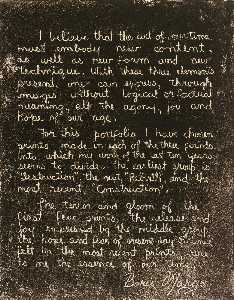 I believe that the art of our time
must embody new content,
as well as new form and new
technique. With these three elements
present, one can express, through
images without logical or factual
meaning, all the agony, joy and
hope of our age.
For this portfolio I have chosen
prints made in each of the three periods
into which my work of the last ten years
seems to divide. The earliest group is
"Destruction", the next, "Rebirth", and the
most recent, "Construction".
The terror and gloom of the
first few prints, the release and
joy expressed by the middle group,
the hope and fear of present day science
felt in the most recent prints, are
to me the essence of our time.
Boris Margo